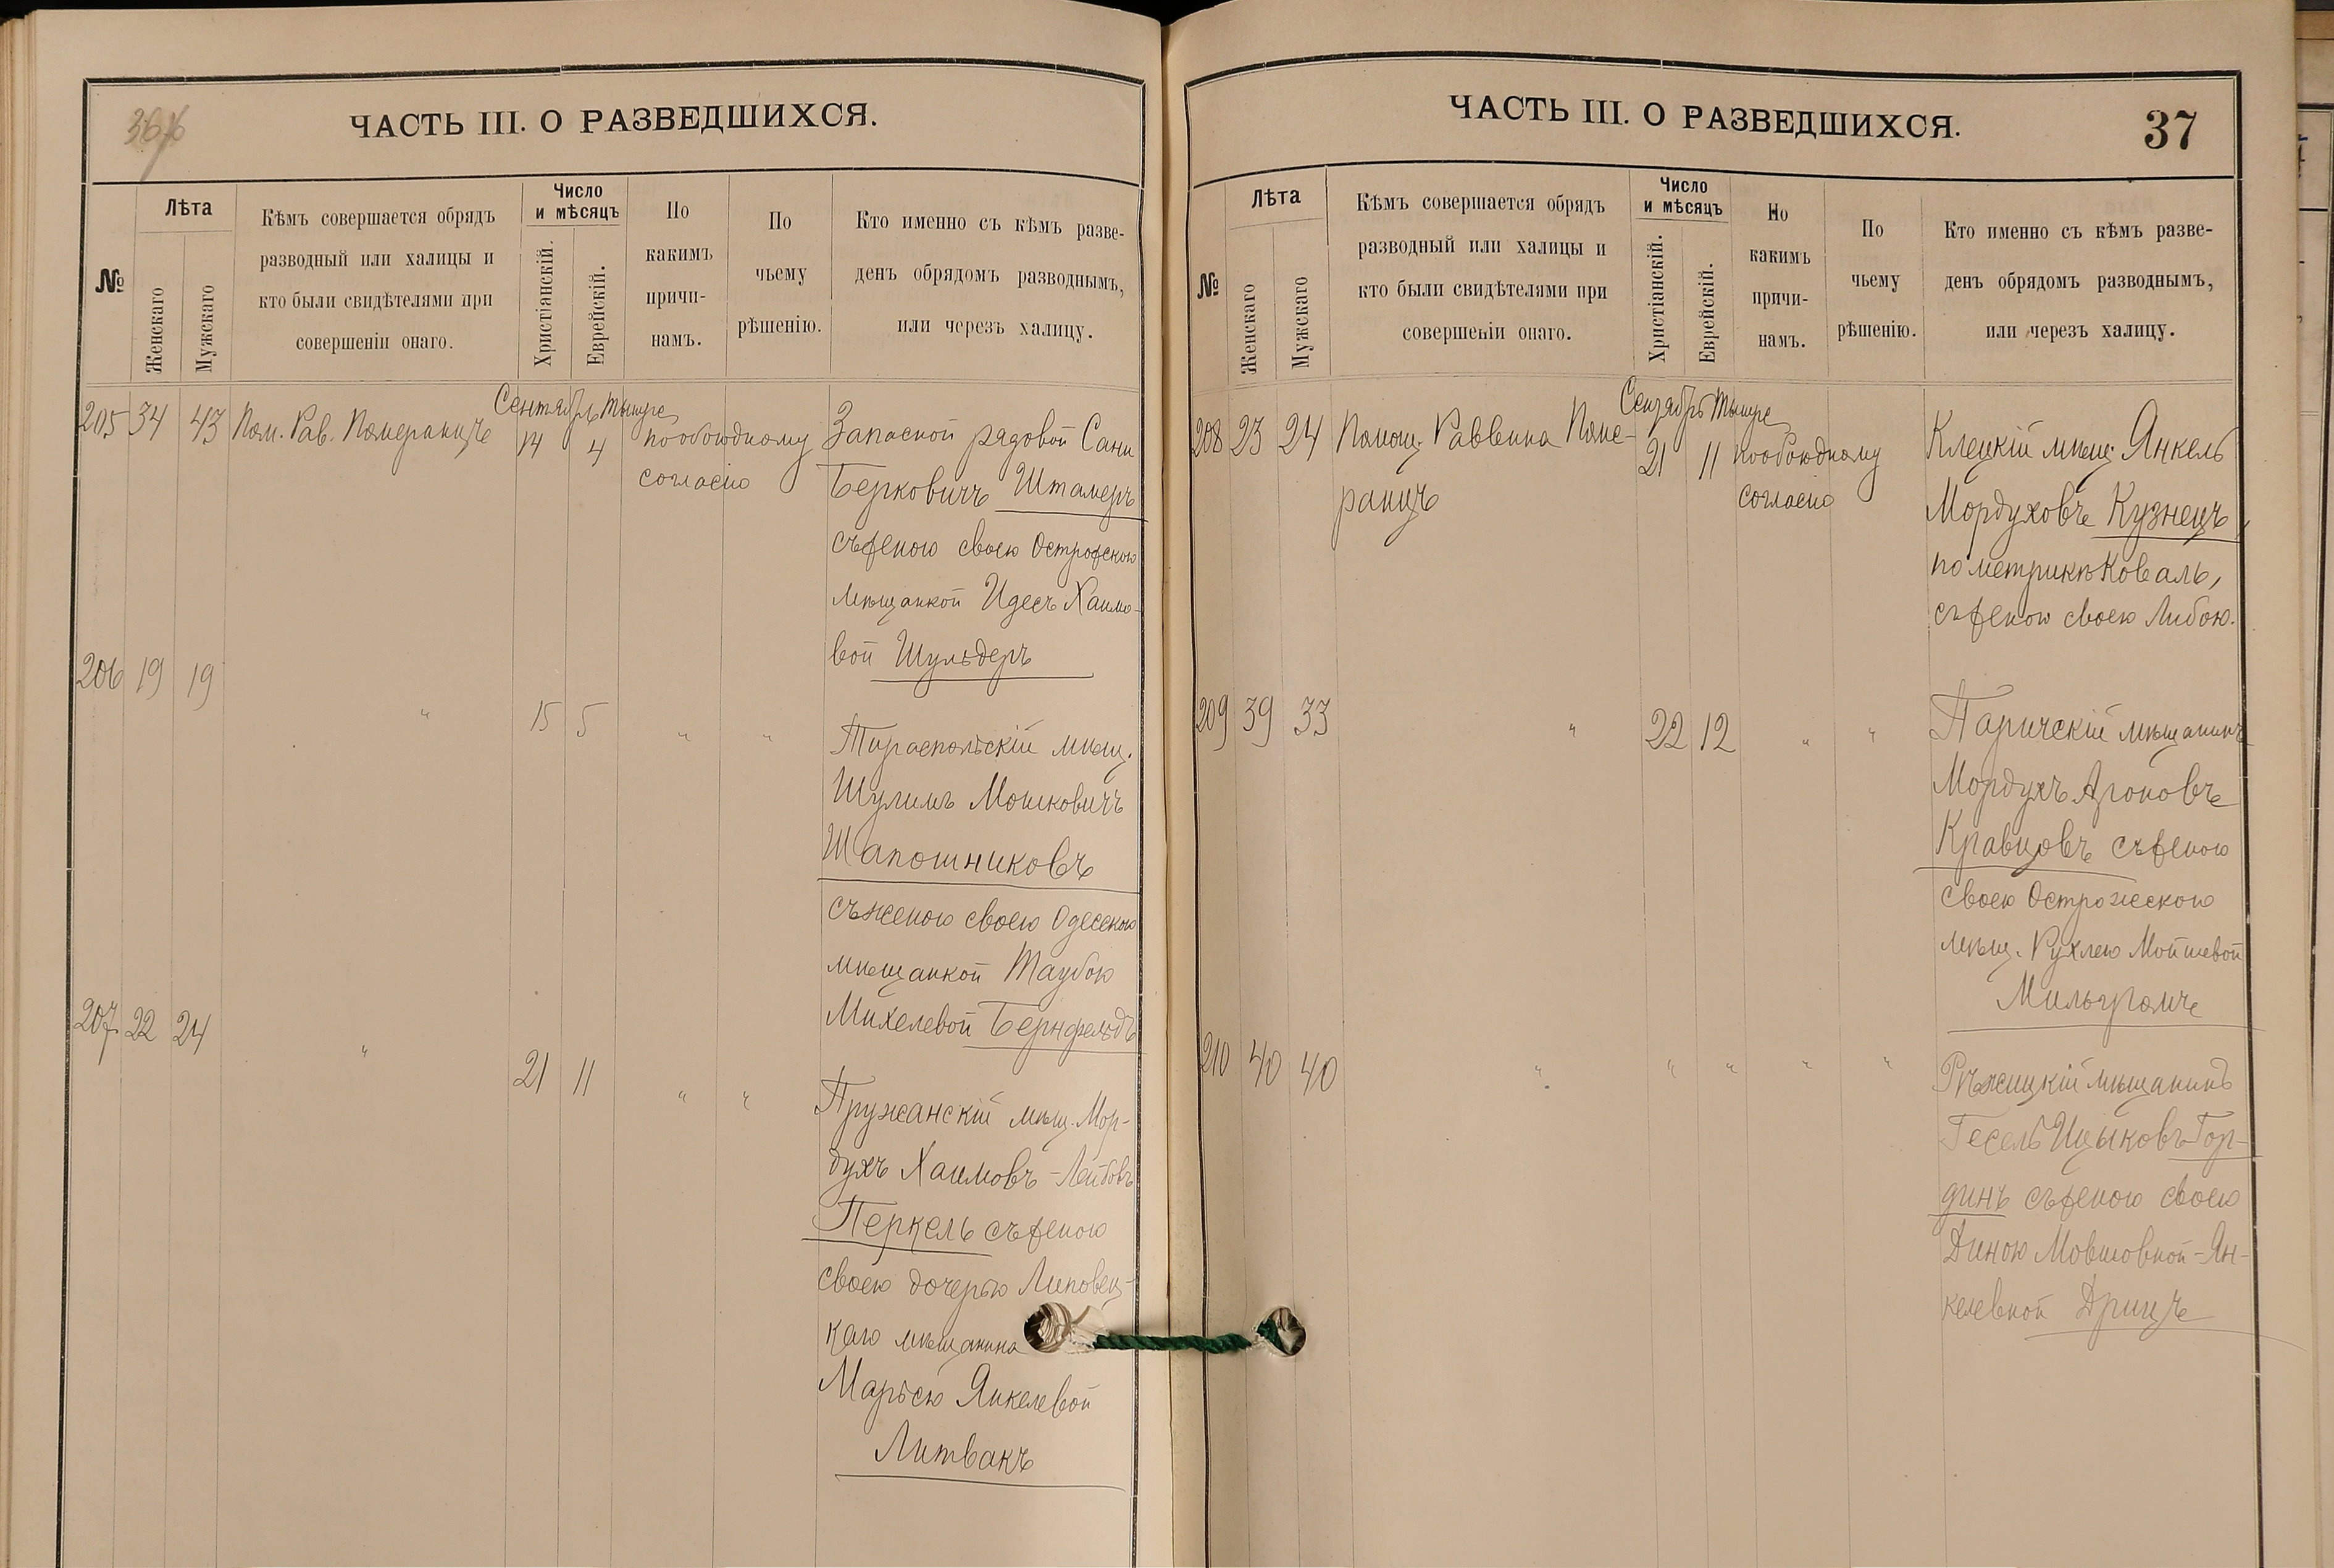 ЧАСТЬ III. О РАЗВЕДШИХСЯ.
№
Лѣта
Женскаго
Мужскаго
Кѣмъ совершается обрядъ
разводный или халицы и
кто были свидѣтелями при
совершеніи онаго.
Число
и мѣсяцъ
Христіанскій.
Еврейскій.
По
какимъ
причи-
намъ.
По
чьему
рѣшенію.
Кто именно съ кѣмъ разве-
денъ обрядомъ разводнымъ,
или черезъ халицу.
Сентябрь Тишре
205 34 43 Пом. Рав. Померанцъ 14 4 по обоюдному
согласію
Запасной рядовой Сани
Берковичъ Штамеръ
съ женою своею Острожскою
мѣщанкой Идесъ Хаимо-
вой Шульдеръ
206 19 19 " 15 5 " "
Тираспольскій мѣщ.
Шулимъ Мошковичъ
Шапошниковъ
съ женою своею Одесскою
мѣщанкой Таубою
Михелевой Бернфельдъ
207 22 24 " 21 11 " "
Пружанскій мѣщ. Мор-
духъ Хаимовъ-Лейбовъ
Перкель съ женою
своею дочерью Липовец-
каго мѣщанина
Марьею Янкелевой
Литвакъ
ЧАСТЬ III. О РАЗВЕДШИХСЯ.
37
№
Лѣта
Женскаго
Мужскаго
Кѣмъ совершается обрядъ
разводный или халицы и
кто были свидѣтелями при
совершеніи онаго.
Число
и мѣсяцъ
Христіанскій.
Еврейскій.
По
какимъ
причи-
намъ.
По
чьему
рѣшенію.
Кто именно съ кѣмъ разве-
денъ обрядомъ разводнымъ,
или черезъ халицу.
Сентябрь Тишре
208 23 24 Помощ. Раввина Поме-
ранцъ
21 11 по обоюдному
согласію
Клецкій мѣщ. Янкель
Мордуховъ Кузнецъ,
по метрикѣ Коваль,
съ женою своею Либою.
209 39 33 " 22 12 " "
Паричскій мѣщанинъ
Мордухъ Ароновъ
Кравцовъ съ женою
своею Острожскою
мѣщ. Рухлею Мойшевой
Мильгромъ
210 40 40 " " " " "
Рѣжицкій мѣщанинъ
Гесель Ицыковъ Гор-
динъ съ женою своею
Диною Мовшовной-Ян-
келевной Дрицъ